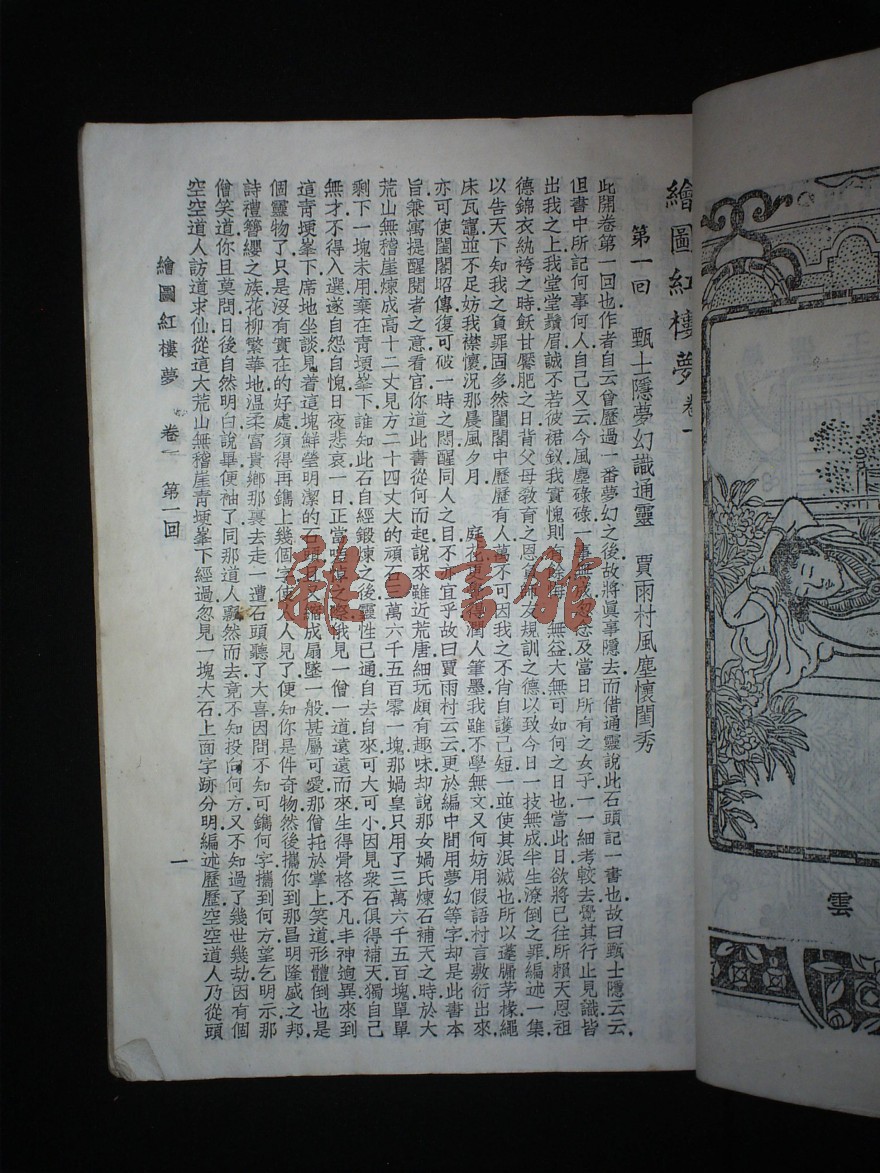 繪圖紅樓夢卷一
第一回　甄士隱夢幻識通靈　賈雨村風塵懷閨秀
此開卷第一回也作者自云曾歷過一番夢幻之後故將眞事隱去而借通靈說此石頭記一書也故曰甄士隱云云
但書中所記何事何人自己又云今風塵碌碌一事無成忽念及當日所有之女子一一細考較去覺其行止見識皆
出我之上我堂堂鬚眉誠不若彼裙釵我實愧則有
無益大無可如何之日也當此日欲將已往所賴天恩祖
德錦衣紈袴之時飫甘饜肥之日背父母敎育之恩
規訓之德以致今日一技無成半生潦倒之罪編述一集
以告天下知我之負罪固多然閨閣中歷歷有人
不可因我之不肖自護己短一並使其泯滅也所以蓬牖茅椽繩
床瓦竈並不足妨我襟懷況那晨風夕月
庭
潤人筆墨我雖不學無文又何妨用假語村言敷衍出來
亦可使閨閣昭傳復可破一時之悶醒同人之目不
宜乎故曰賈雨村云云更於編中間用夢幻等字却是此書本
旨兼寓提醒閱者之意看官你道此書從何而起說來雖近荒唐細玩頗有趣味却說那女媧氏煉石補天之時於大
荒山無稽崖煉成高十二丈見方二十四丈大的頑石三萬六千五百零一塊那媧皇只用了三萬六千五百塊單單
剩下一塊未用棄在靑埂峯下誰知此石自經鍛煉之後靈性已通自去自來可大可小因見衆石俱得補天獨自己
無才不得入選遂自怨自愧日夜悲哀一日正當
俄見一僧一道遠遠而來生得骨格不凡丰神逈異來到
這靑埂峯下席地坐談見着這塊鮮瑩明潔的石頭
縮成扇墜一般甚屬可愛那僧托於掌上笑道形體倒也是
個靈物了只是沒有實在的好處須得再鐫上幾個字使人見了便知你是件奇物然後攜你到那昌明隆盛之邦
詩禮簪纓之族花柳繁華地溫柔富貴鄕那裏去走一遭石頭聽了大喜因問不知可鐫何字攜到何方望乞明示那
僧笑道你且莫問日後自然明白說畢便袖了同那道人飄然而去竟不知投向何方又不知過了幾世幾劫因有個
空空道人訪道求仙從這大荒山無稽崖靑埂峯下經過忽見一塊大石上面字跡分明編述歷歷空空道人乃從頭
繪圖紅樓夢　卷一　第一回
一
雲
書館